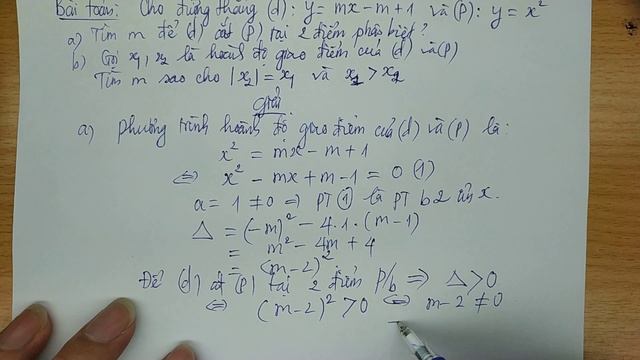 Bài toán: Cho đường thẳng (d): y = mx - m + 1 và (P): y = x²
a) Tìm m để (d) cắt (P) tại 2 điểm phân biệt?
b) Gọi x₁, x₂ là hoành độ giao điểm của (d) và (P)
Tìm m sao cho |x₂| = x₁ và x₁ > x₂
Giải
a) Phương trình hoành độ giao điểm của (d) và (P) là:
x² = mx - m + 1
⇔ x² - mx + m - 1 = 0 (1)
a = 1 ≠ 0 ⇒ PT (1) là PT b2 ẩn x.
Δ = (-m)² - 4.1.(m - 1)
= m² - 4m + 4
= (m - 2)²
Để (d) cắt (P) tại 2 điểm p/b ⇒ Δ > 0
⇔ (m - 2)² > 0 ⇔ m - 2 ≠ 0